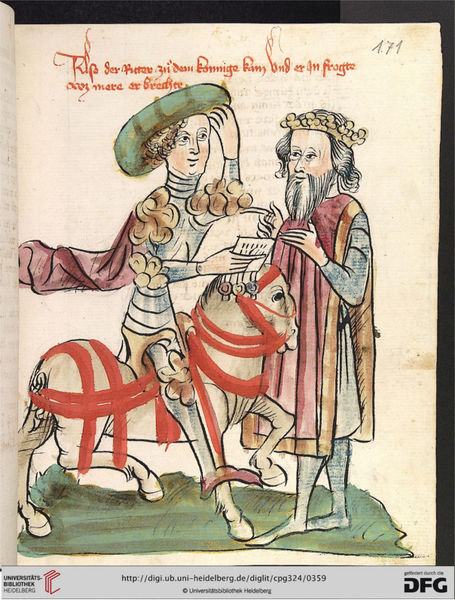 171
Also der Ritter zu dem konnige kam Und er In frogte
waz mere er brechte
UNIVERSITÄTS-
BIBLIOTHEK
HEIDELBERG
http://digi.ub.uni-heidelberg.de/diglit/cpg324/0359
© Universitätsbibliothek Heidelberg
gefördert durch die
DFG